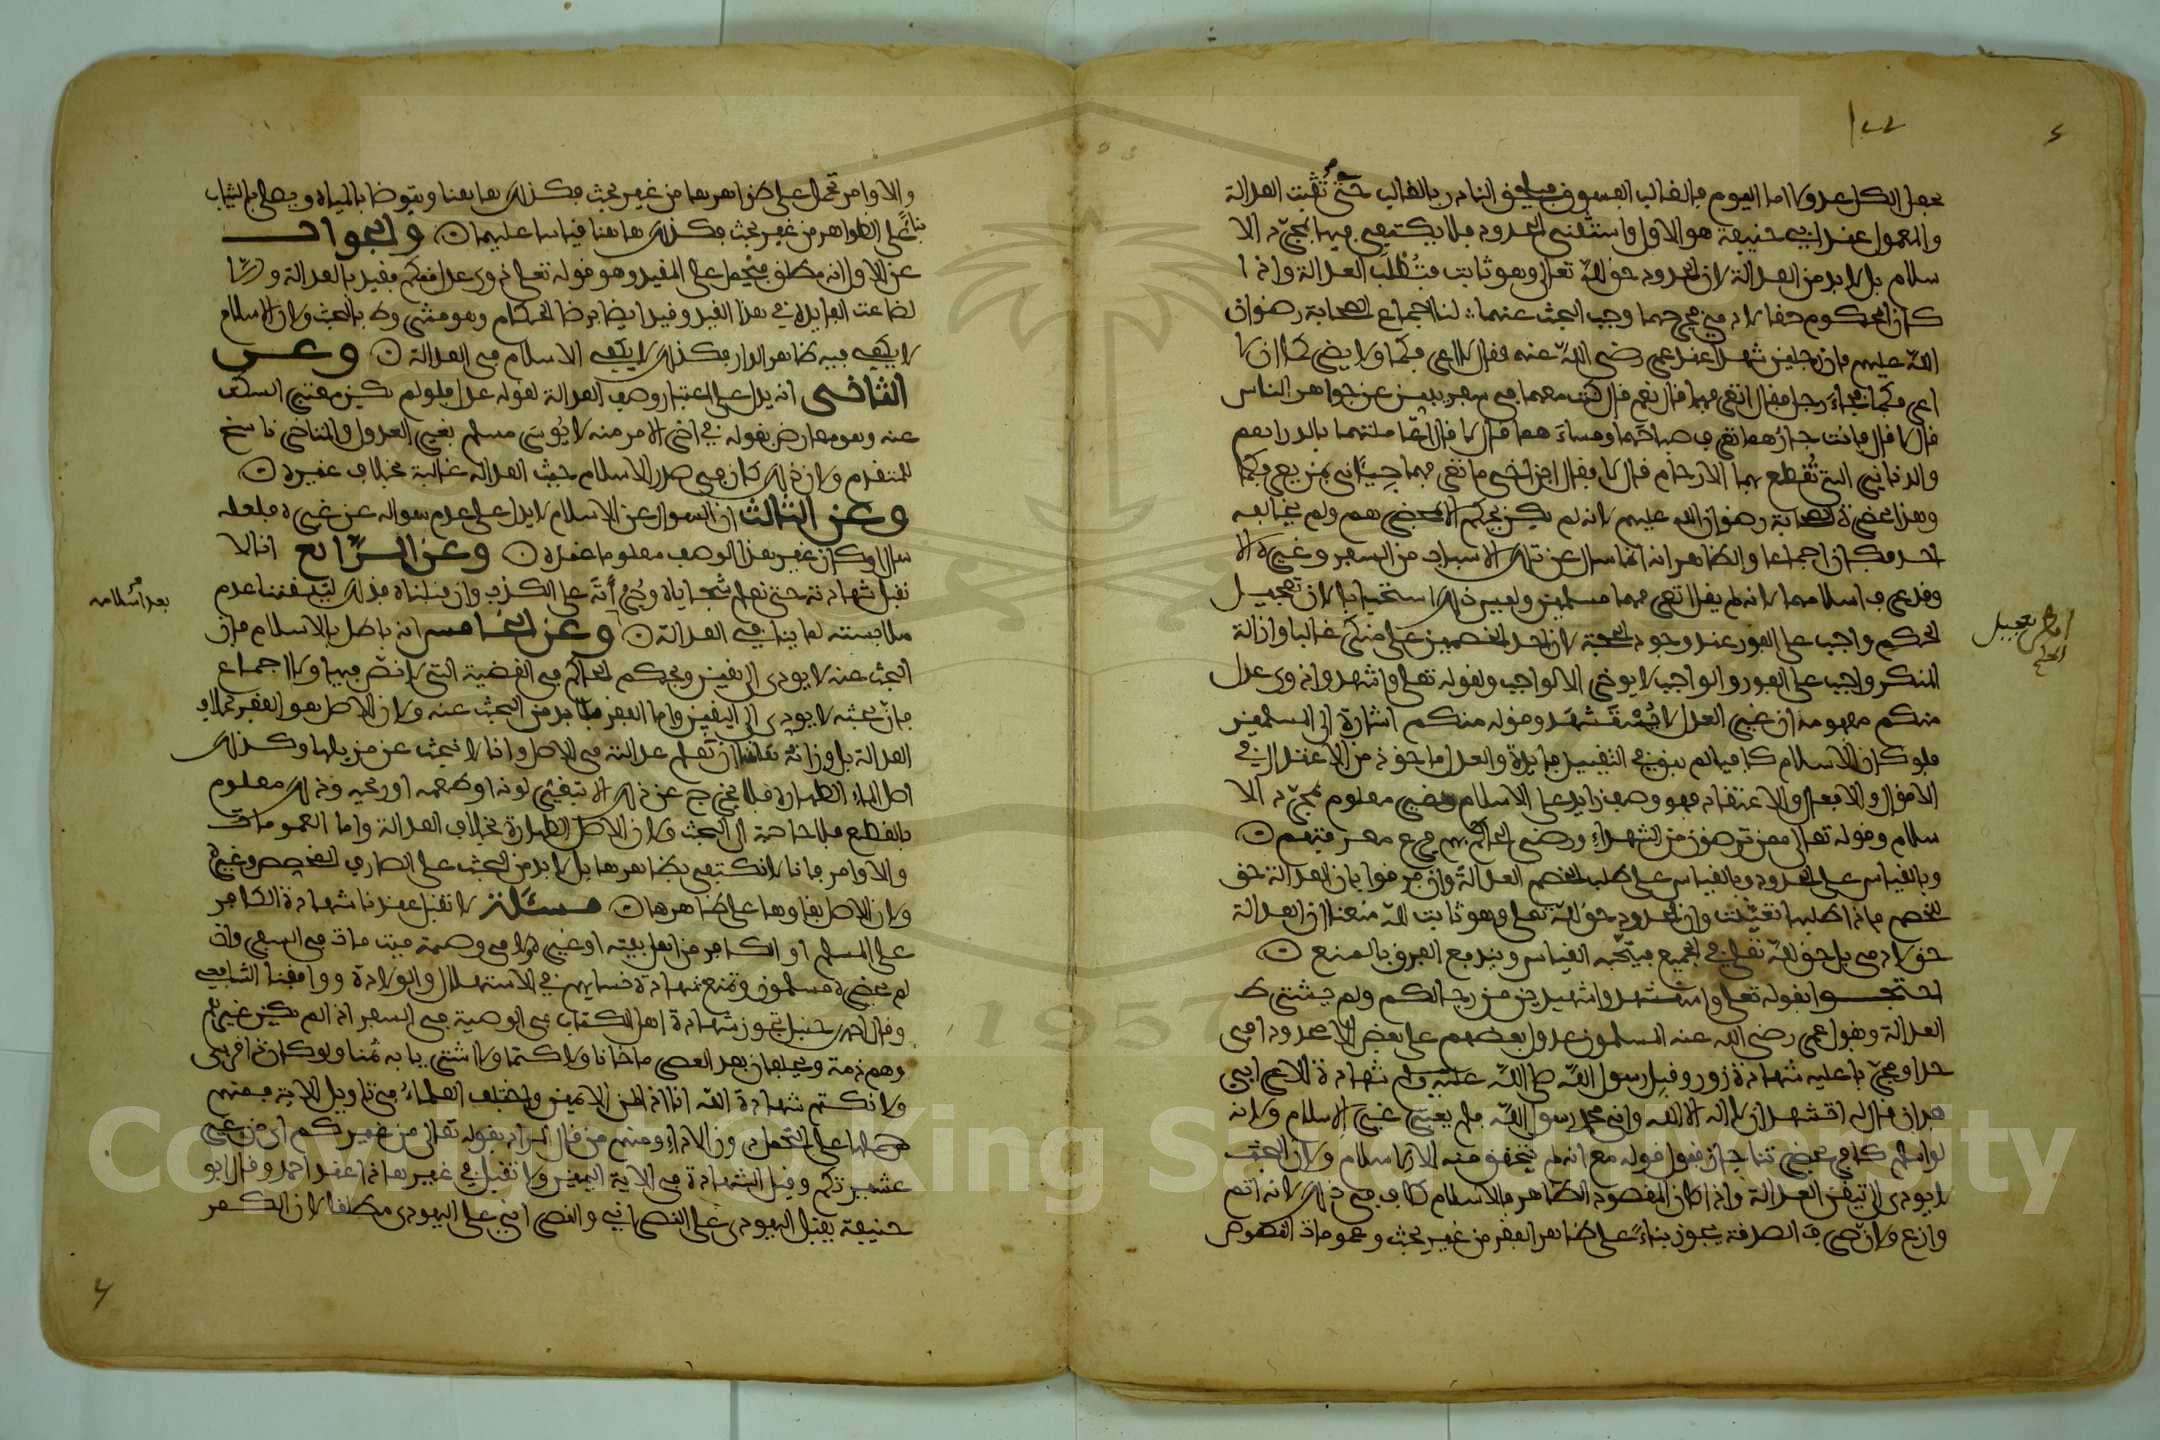 ١٢٢
يجعل الكل عدولا اما اليوم فالغالب الفسوق فيلحق النادر بالغالب حتى تثبت العدالة
والمعول عند ابي حنيفة هو الاول واستثنى الحدود فلا يكتفى فيها بمجرد الا
سلام بل لا بد من العدالة لان الحدود حق لله تعالى وهو ثابت فتطلب العدالة واذا
كان المحكوم حقا لادمي وجب البحث عنهما لنا اجماع الصحابة رضوان
الله عليهم فان رجلين شهدا عند عمر رضي الله عنه فقال لا اعرفكما ولا يضركما ان لا
اعرفكما فجاء رجل فقال اتعرفهما قال نعم قال كنت معهما في سفر يبين عن جواهر الناس
قال لا قال فانت جارهما تعرف صباحهما ومساءهما قال لا قال اعاملتهما بالدراهم
والدنانير التي تقطع بها الارحام قال لا فقال ابن اخي ما تعرفهما جيئاني بمن يعرفكما
وهذا بحضرة الصحابة رضوان الله عليهم لانه لم يكن يحكم الا بحضرتهم ولم يخالفه
احد فكان اجماعا والظاهر انه انما سال عن تلك الاسباب من السفر وغيره الا
وقد عرف اسلامهما لانه لم يقل اتعرفهما مسلمين وليس ذلك استحبابا لان تعجيل
الحكم واجب على الفور عند وجود الحجة لان احد الخصمين على منكر غالبا وازالة
المنكر واجب على الفور والواجب لا يؤخر الا لواجب ولقوله تعالى واشهدوا ذوي عدل
منكم مفهومه ان غير العدل لا يستشهد وقوله منكم اشارة الى المسلمين
فلو كان الاسلام كافيا لم يبق في التقييد فايدة والعدل ماخوذ من الاعتدال في
الاقوال والافعال والاعتقاد فهو وصف زايد على الاسلام وغير معلوم بمجرد الا
سلام وقوله تعالى ممن ترضون من الشهداء ورضى الحاكم بهم فرع معرفتهم
وبالقياس على الحدود وبالقياس على طلب الخصم العدالة وان فرقوا بان العدالة حق
للخصم فاذا طلبها تعينت وان الحدود حق لله تعالى وهو ثابت لله منعنا ان العدالة
حق لادمي بل حق لله تعالى في الجميع فيتجه القياس ويندفع الفرق بالمنع
احتجوا بقوله تعالى واستشهدوا شهيدين من رجالكم ولم يشترط
العدالة وبقول عمر رضي الله عنه المسلمون عدول بعضهم على بعض الا محدودا في
حد او مجربا عليه شهادة زور وقبل رسول الله صلى الله عليه وسلم شهادة الاعرابي
بعد ان قال له اتشهد ان لا اله الا الله واني محمد رسول الله فلم يعتبر غير الاسلام ولانه
لو اسلم كافر بحضرتنا جاز قبول قوله مع انه لم يتحقق منه الا الاسلام ولان البحث
لا يودي الى تيقن العدالة واذا كان المقصود الظاهر فالاسلام كاف في ذلك لانه اتم
وازع ولان صرف الصدقة يجوز بناء على ظاهر الفقر من غير بحث وعمومات النصوص
امر تعجيل
الحكم
والاوامر تحمل على ظواهرها من غير بحث فكذلك هاهنا ويتوضا بالمياه ويصلى بالثياب
بناء على الظواهر من غير بحث فكذلك هاهنا قياسا عليها والجواب
عن الاول انه مطلق فيحمل على المقيد وهو قوله تعالى ذوي عدل منكم فقيد بالعدالة والا
لضاعت الفايدة في هذا القيد وقيد ايضا برضا الحكام وهو مشروط بالبحث ولان الاسلام
لا يكفي فيه ظاهر الدار فكذلك لا يكفي الاسلام في العدالة وعن
الثاني انه يدل على اعتبار وصف العدالة لقوله عدول فلو لم يكن معتبرا لسكت
عنه وهو معارض بقوله في اخر الامر منه لا يوسر مسلم بغير العدول والمتاخر ناسخ
للمتقدم ولان ذلك كان في صدر الاسلام حيث العدالة غالبة بخلاف غيره
وعن الثالث ان السؤال عن الاسلام لا يدل على عدم سؤاله عن غيره فلعله
سال او كان غير هذا الوصف معلوما عنده وعن الرابع انا لا
نقبل شهادته حتى نعلم سجاياه وجرأته على الكذب وان قبلناه فذلك لتيقننا عدم
ملابسته لما ينافي العدالة وعن الخامس انه باطل بالاسلام فان
بعد اسلامه
البحث عنه لا يودي الى يقين وبحكم الحاكم في القضية التي لا نص فيها ولا اجماع
فان بحثه لا يودي الى اليقين واما الفقر فلا بد من البحث عنه ولان الاصل هو الفقر بخلاف
العدالة بل وزانه ان تعلم عدالته في الاصل وانا لا نبحث عن مزيلها وكذلك
اصل الماء الطهارة فلا يخرج عن ذلك الا بتغير لونه او طعمه او ريحه وذلك معلوم
بالقطع فلا حاجة الى البحث ولان الاصل الطهارة بخلاف العدالة واما العمومات
والاوامر فانا لا نكتفي بظاهرها بل لا بد من البحث على الصارف المخصص وغيره
ولان الاصل بقاوها على ظاهرها مسئلة لا تقبل عندنا شهادة الكافر
على المسلم او الكافر من اهل بيته او غيره ولا في وصية ميت مات في السفر وان
لم يحضره مسلمون وتمنع شهادة نسايهم في الاستهلال والولادة ووافقنا الشافعي
وقال احمد بن حنبل تجوز شهادة اهل الكتاب في الوصية في السفر اذا لم يكن غيرهم
وهم ذمة ويحلفان بعد العصر ما خانا ولا كتما ولا اشتريا به ثمنا ولو كان ذا قربى
ولا نكتم شهادة الله انا اذا لمن الاثمين واختلف العلماء في تاويل الاية فمنهم
من حملها على التحمل دون الاداء ومنهم من قال المراد بقوله تعالى من غيركم اي من غير
عشيرتكم وقيل الشهادة في الاية اليمين ولا تقبل في غير هذا عند احمد وقال ابو
حنيفة يقبل اليهودي على النصراني والنصراني على اليهودي مطلقا لان الكفر
Copyright © King Saud University
1957